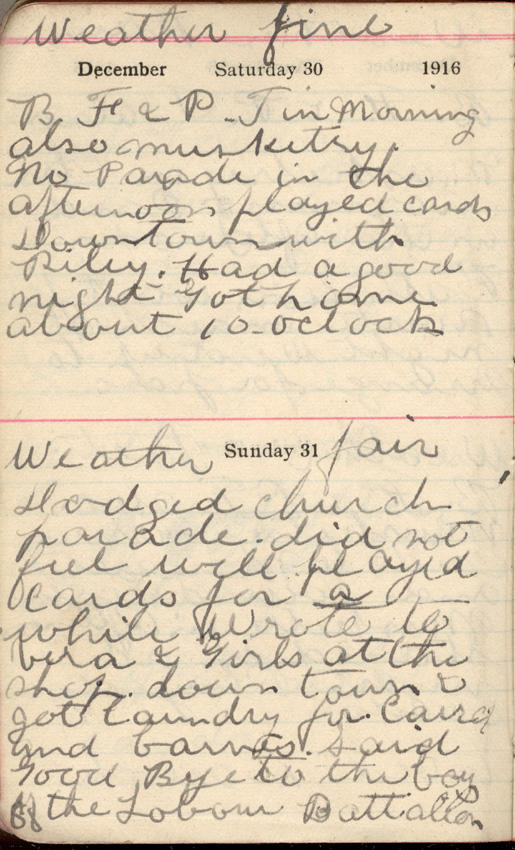 Weather fine
December Saturday 30 1916
B. F & P. T in Morning
also musketry.
No Parade in the
afternoon played cards
Downtown with
Riley. Had a good
night Got home
about 10-oclock
Weather Sunday 31 fair
Dodged church
parade. did not
feel well. played
cards for a
while Wrote to
Vera & Girls at the
shop. down town &
got Laundry for Caird
and barnes. Said
Good Bye to the boys
of the Labour Battallon